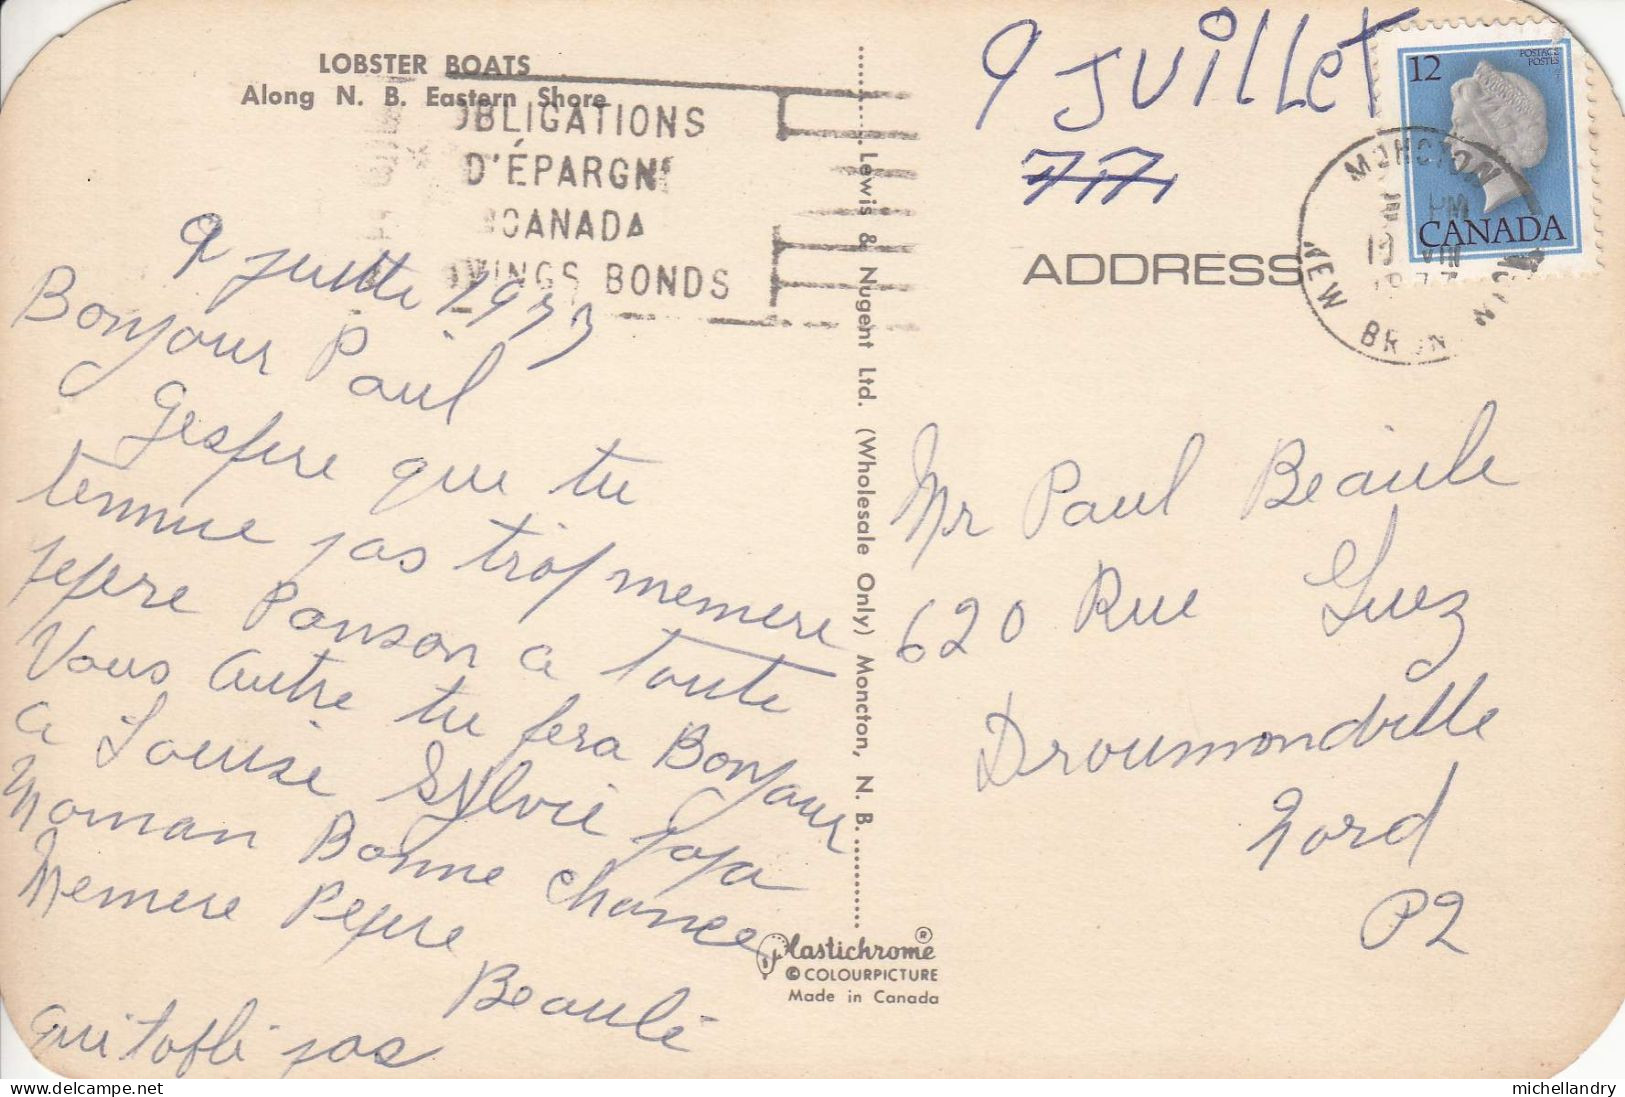 LOBSTER BOATS
Along N. B. Eastern Shore
OBLIGATIONS
D'ÉPARGN
CANADA
VINGS BONDS
9 juillet 1977
Bonjour Paul
Jespere que tu
tennuie pas trop memere
pepere Ponson a toute
Vous autre tu fera Bonjour
a Louise Sylvie papa
Moman Bonne chance
Memere Pepere
Beaulé
pas
Lewis & Nugent Ltd. (Wholesale Only) Moncton, N. B.
Plastichrome ®
© COLOURPICTURE
Made in Canada
9 JUiLLeT
77
12
POSTAGE
POSTES
CANADA
MONCTON
PM
VIII
NEW BRUN
ADDRESS
Mr Paul Beaule
620 Rue Guez
Droumondville
Nord
P2
michellandry